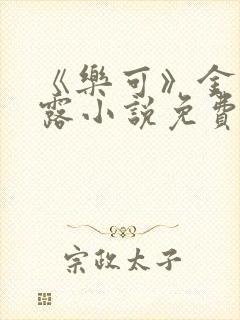 《樂可》金
露小說免費
宗政太子